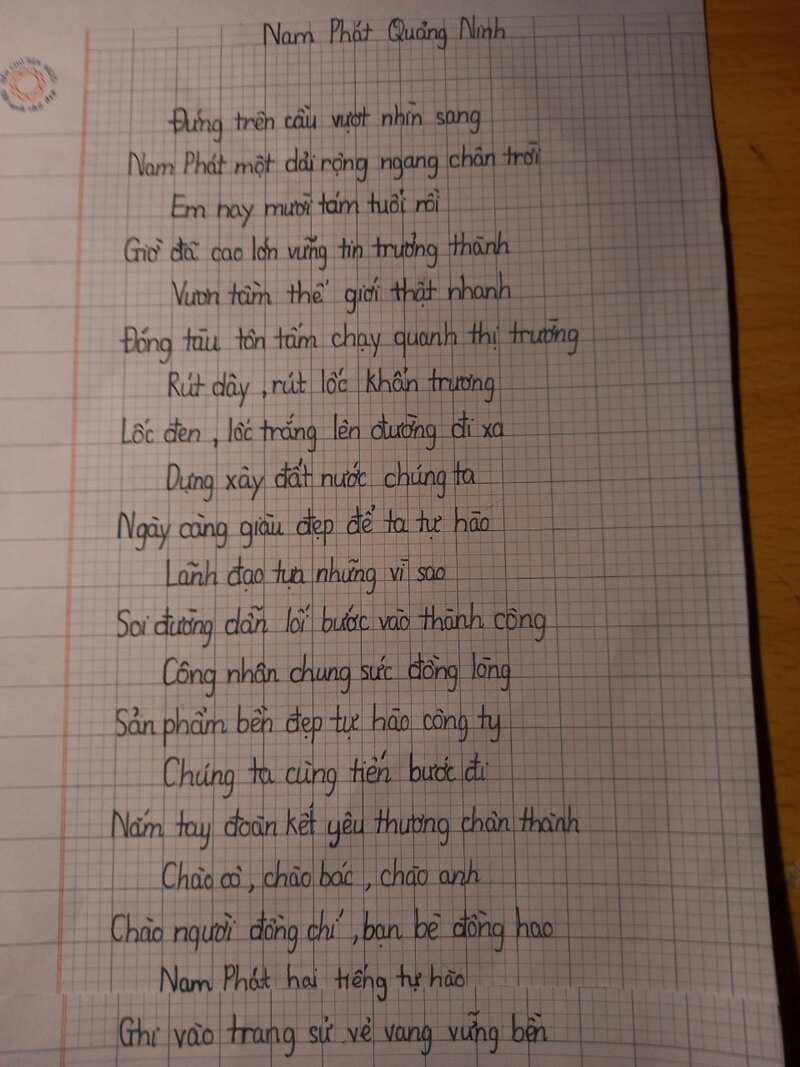 Nam Phát Quảng Ninh
Đứng trên cầu vượt nhìn sang
Nam Phát một dải rộng ngang chân trời
Em nay mười tám tuổi rồi
Giờ đã cao lớn vững tin trưởng thành
Vươn tầm thế giới thật nhanh
Đóng tàu tôn tấm chạy quanh thị trường
Rút dây, rút lốc khẩn trương
Lốc đen, lốc trắng lên đường đi xa
Dựng xây đất nước chúng ta
Ngày càng giàu đẹp để ta tự hào
Lãnh đạo tựa những vì sao
Soi đường dẫn lối bước vào thành công
Công nhân chung sức đồng lòng
Sản phẩm bền đẹp tự hào công ty
Chúng ta cùng tiến bước đi
Nắm tay đoàn kết yêu thương chân thành
Chào cô, chào bác, chào anh
Chào người đồng chí, bạn bè đồng hao
Nam Phát hai tiếng tự hào
Ghi vào trang sử vẻ vang vững bền